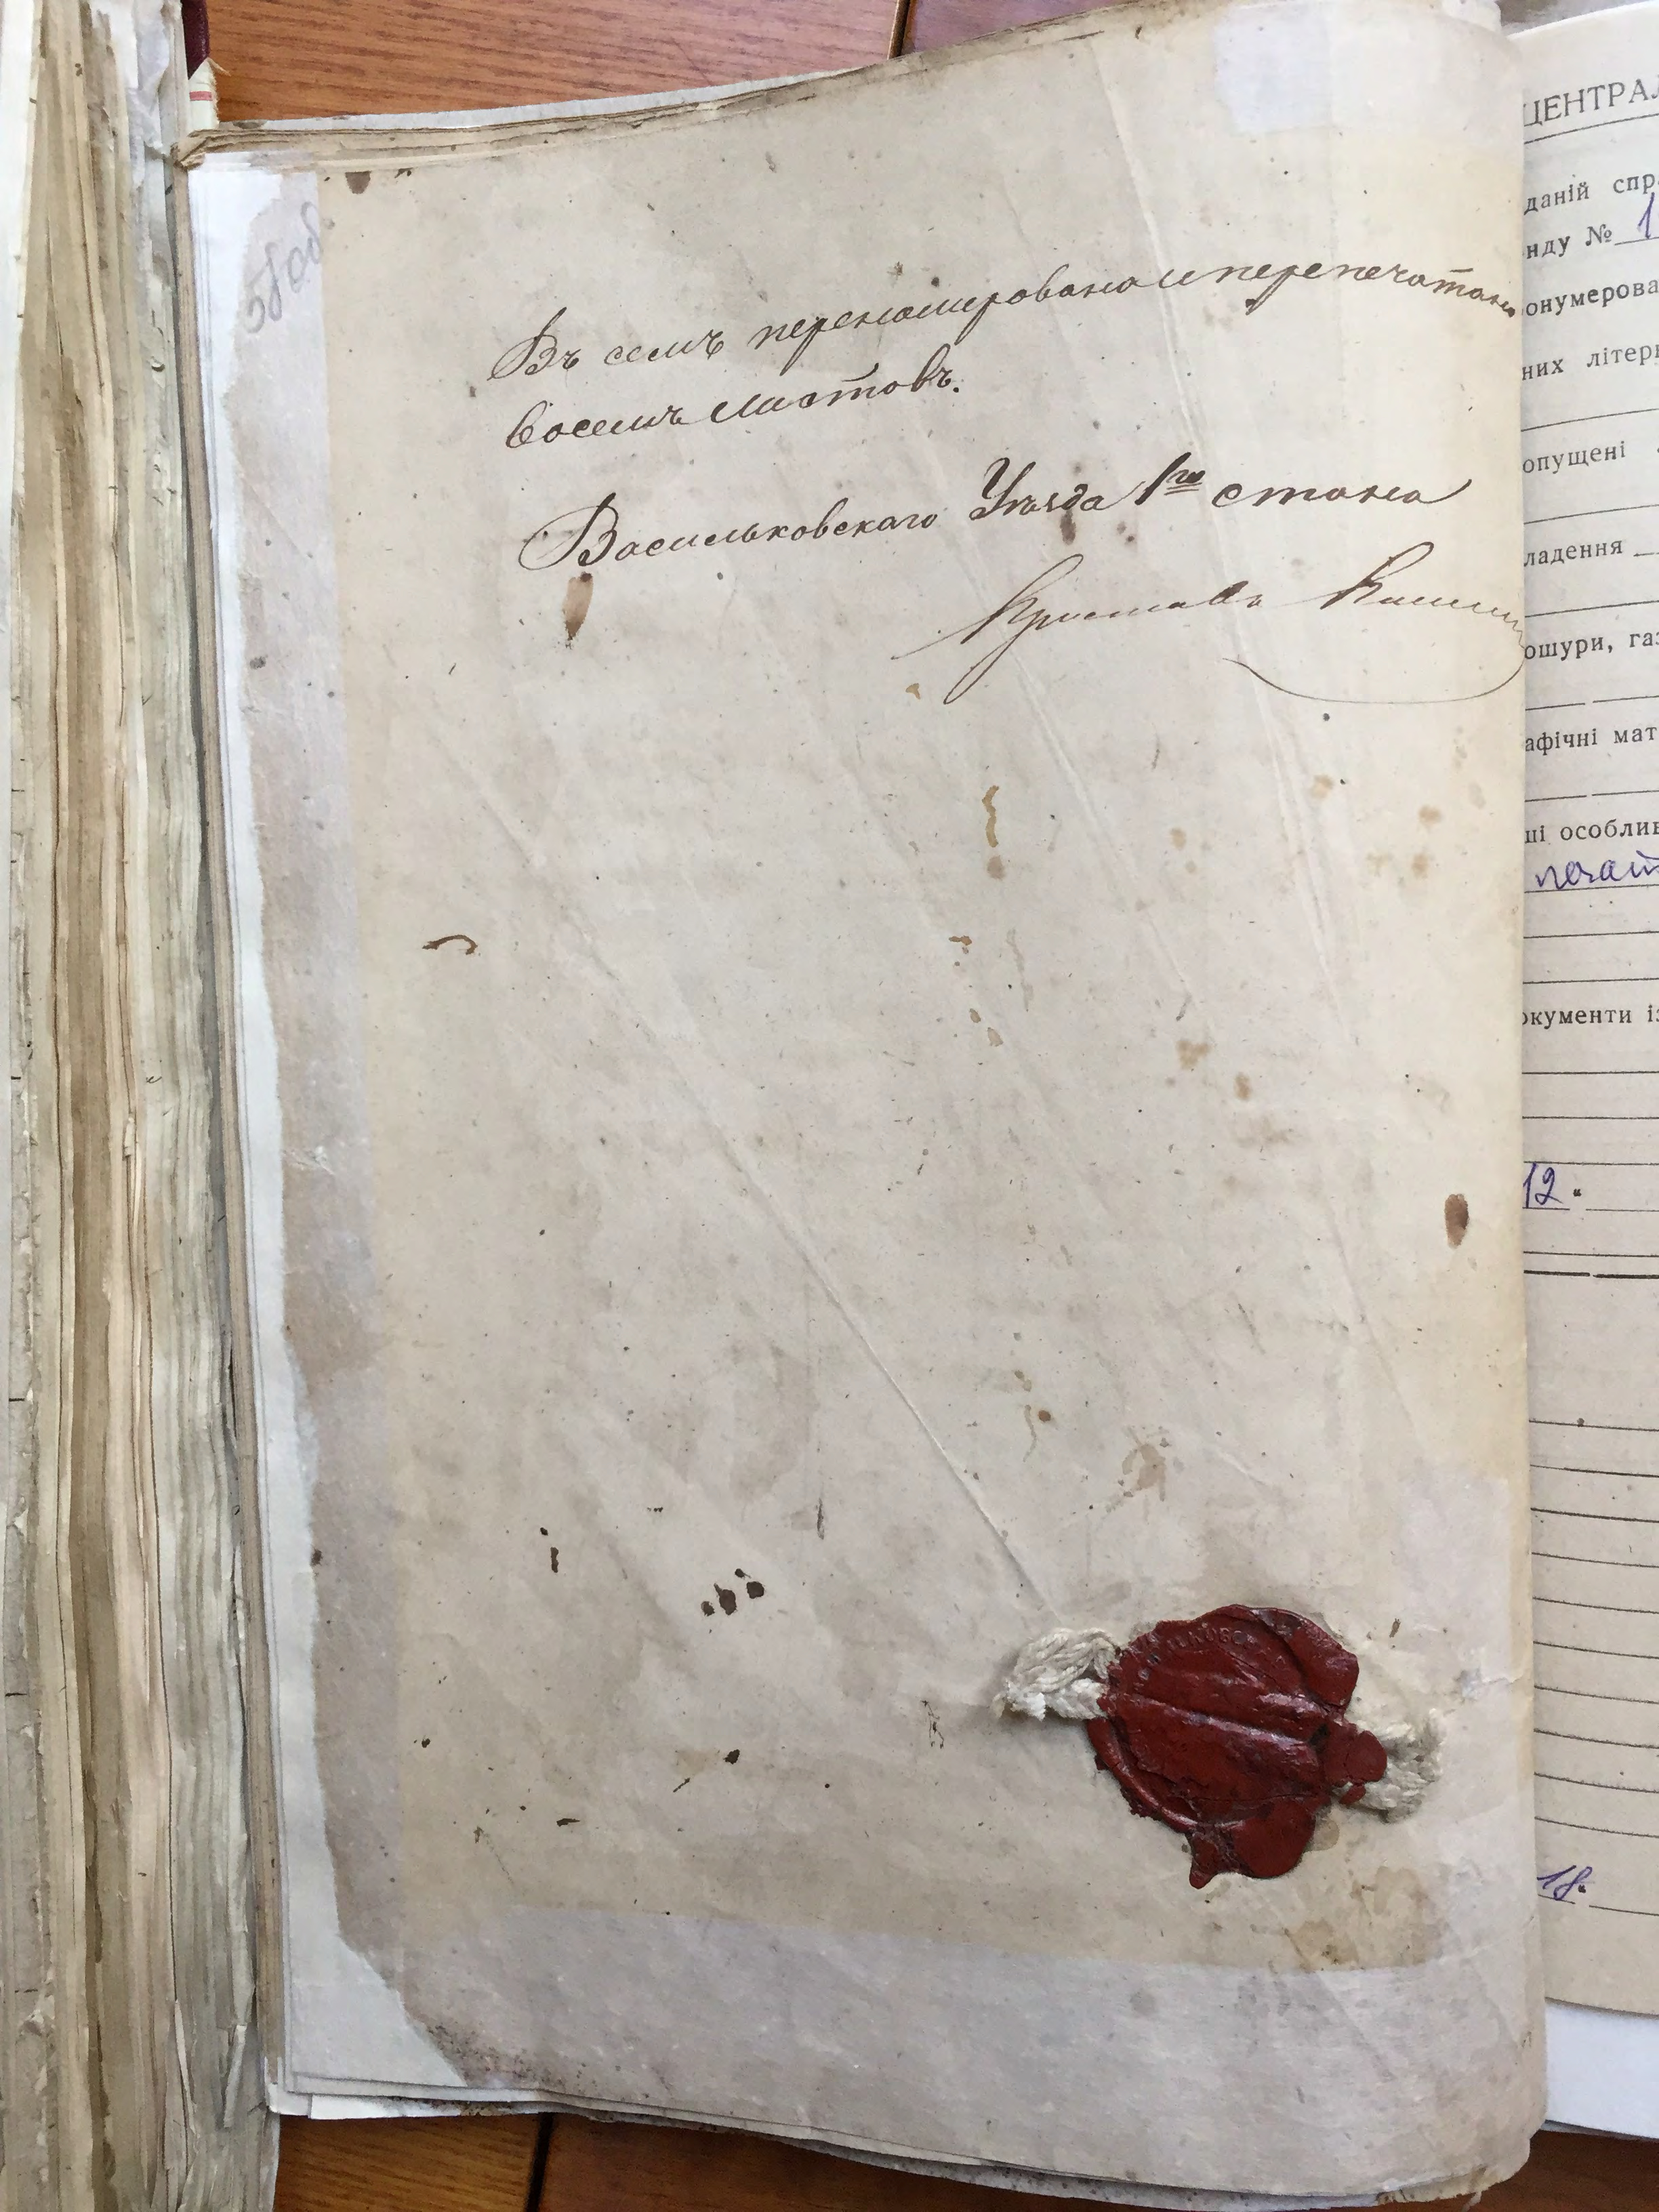 58 об.
Въ семъ переномировано и перепечатано
восемь листовъ.
Васильковскаго Уѣзда 1го стана
Приставъ
ЦЕНТРАЛ
даній спра
нду № 1
онумерова
них літерн
опущені
ладення
ошури, газ
афічні мат
ші особлив
окументи із
12.
18.